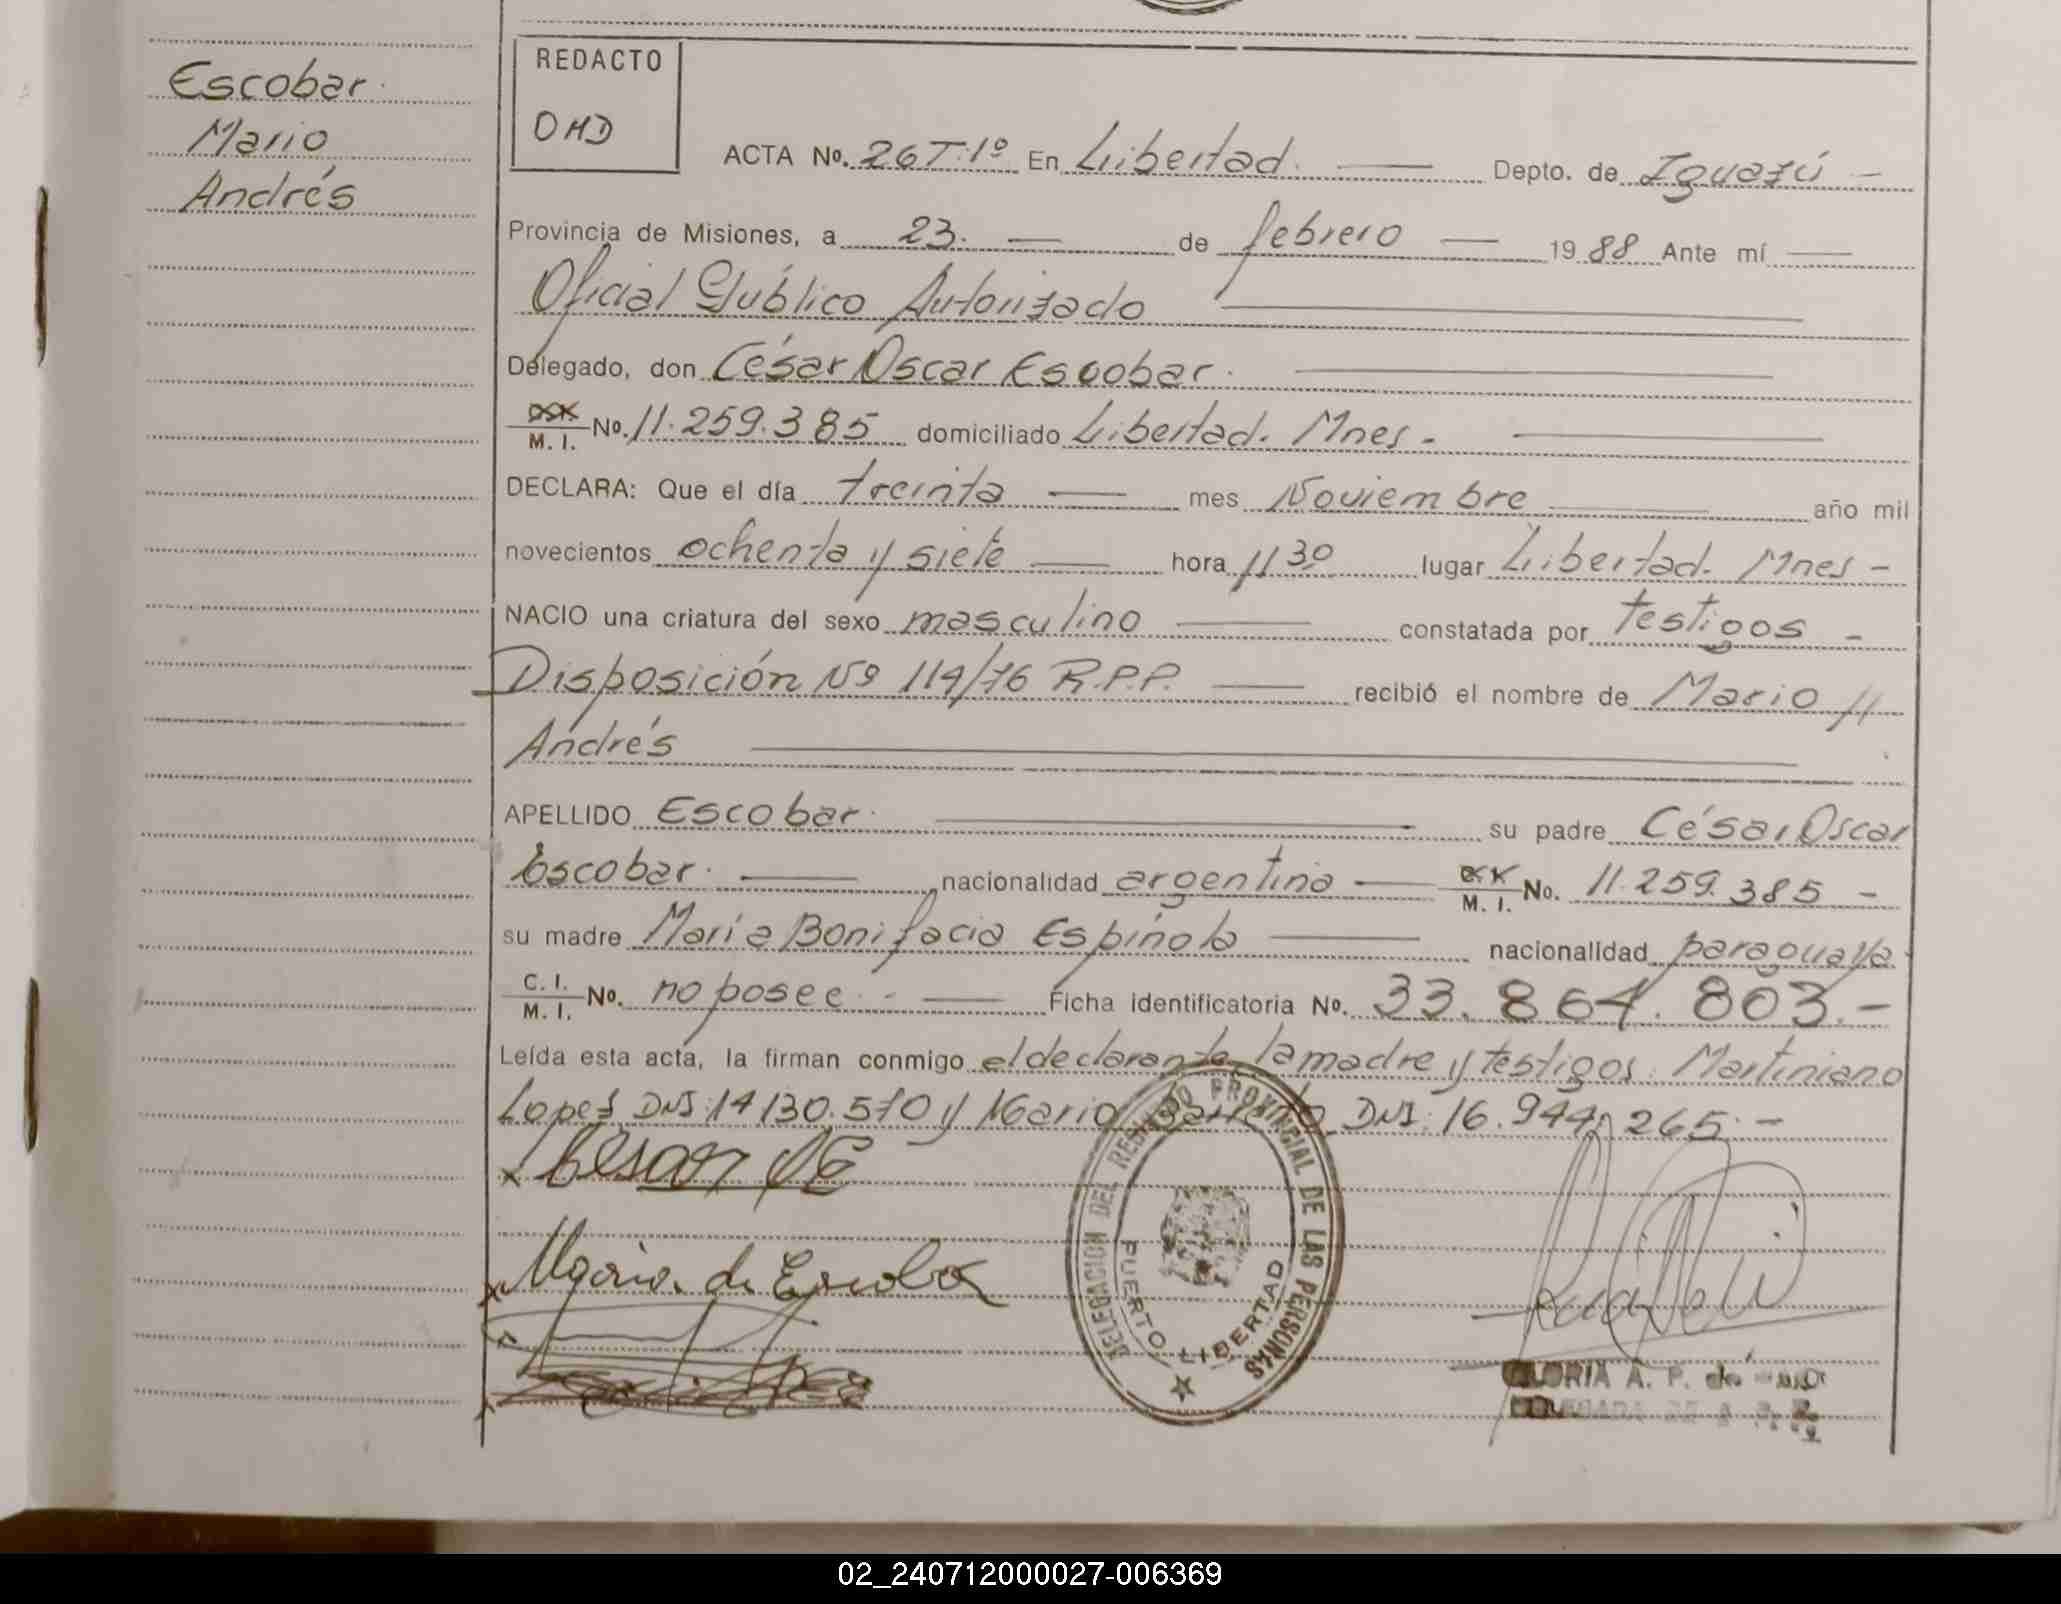 Escobar.
Mario
Andrés
REDACTO
OMD
ACTA No. 26 T:1º En Libertad. Depto. de Iguazú -
Provincia de Misiones, a 23. de febrero 19 88 Ante mí
Oficial Público Autorizado
Delegado, don César Oscar Escobar.
M. I. No. 11.259.385 domiciliado Libertad. Mnes -
DECLARA: Que el día treinta mes Noviembre año mil
novecientos ochenta y siete hora 11 30 lugar Libertad. Mnes -
NACIO una criatura del sexo masculino constatada por testigos -
Disposición Nº 114/76 R.P.P. recibió el nombre de Mario //
Andrés
APELLIDO Escobar. su padre César Oscar
Escobar. nacionalidad argentina M. I. No. 11.259.385 -
su madre María Bonifacia Espíñola nacionalidad paraguaya.
C. I. M. I. No. no posee. - Ficha identificatoria No. 33.864.803.-
Leída esta acta, la firman conmigo el declarante, la madre y testigos: Martiniano
Lopez DNI: 14 130.570 y Mario DNI: 16.944.265.-
Cesar O E
Maria de Escobar
DELEGACION DEL REGISTRO PROVINCIAL DE LAS PERSONAS
PUERTO LIBERTAD
GLORIA A. P. de
02_240712000027-006369